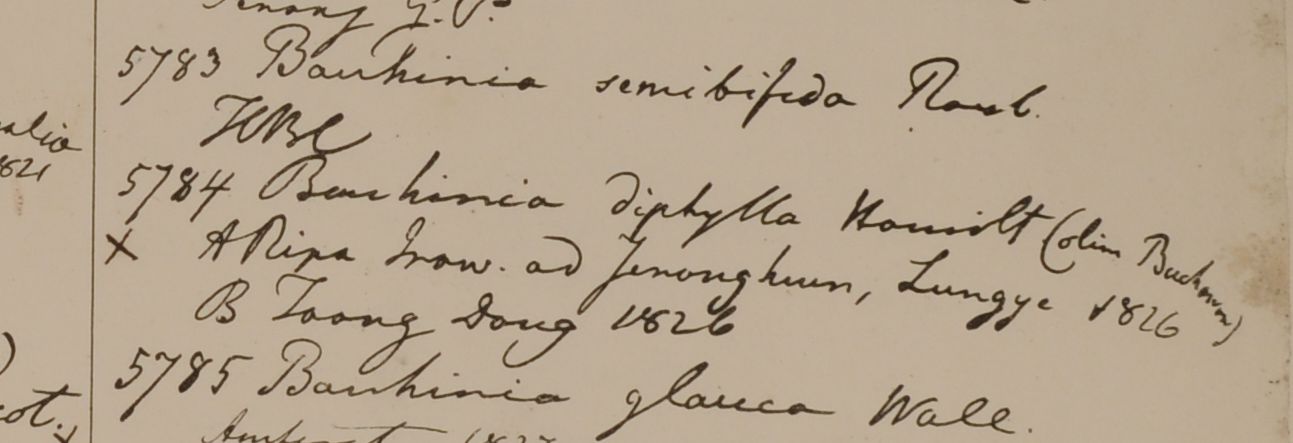 Penang G.P.
5783 Bauhinia semibifida Roxb.
HBC
5784 Bauhinia diphylla Hamilt (olim Buchanan)
x A Ripa Iraw. ad Yenanghuen, Lungye 1826
B Toong Doug 1826
5785 Bauhinia glauca Wall.
Amherst 1827